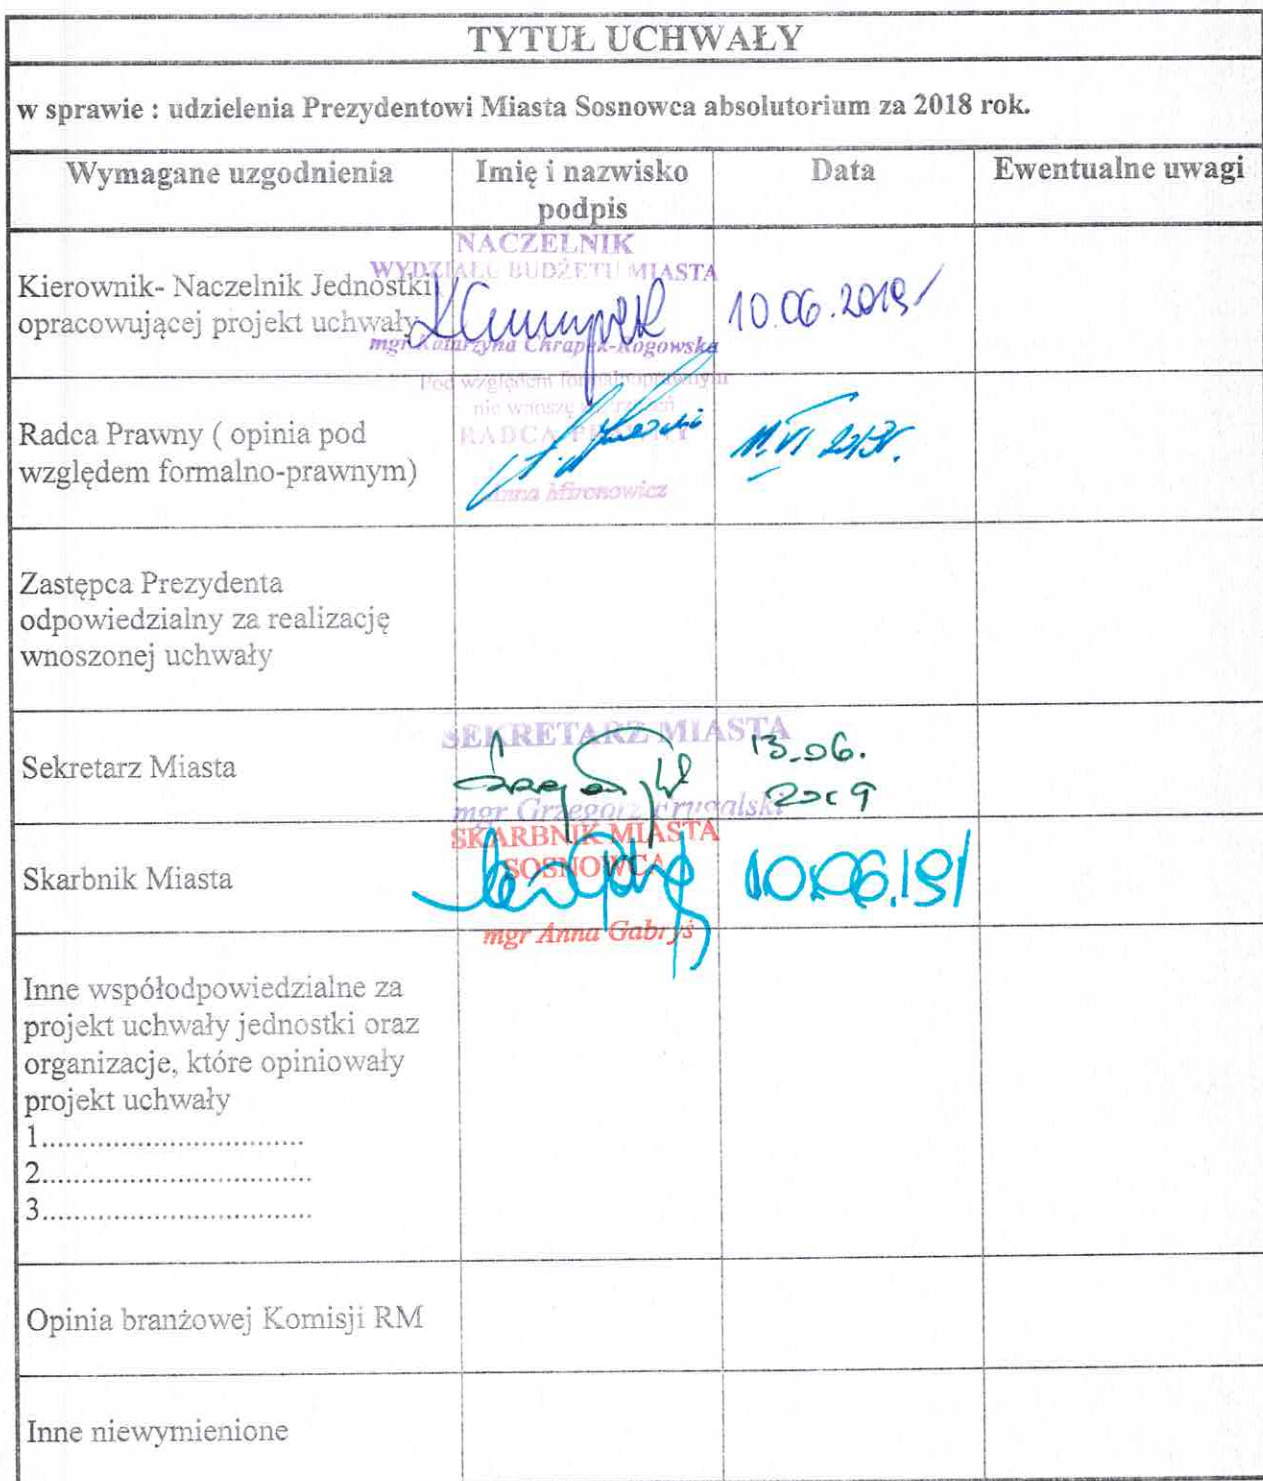 TYTUŁ UCHWAŁY
w sprawie : udzielenia Prezydentowi Miasta Sosnowca absolutorium za 2018 rok.
Wymagane uzgodnienia
Imię i nazwisko
podpis
Data
Ewentualne uwagi
Kierownik- Naczelnik Jednostki
opracowującej projekt uchwały
NACZELNIK
WYDZIAŁU BUDŻETU MIASTA
mgr Katarzyna Chrapek-Rogowska
10.06.2019
Radca Prawny ( opinia pod
względem formalno-prawnym)
Pod względem formalnoprawnym
nie wnoszę
RADCA PRAWNY
Anna Mironowicz
11.VI 2019r.
Zastępca Prezydenta
odpowiedzialny za realizację
wnoszonej uchwały
Sekretarz Miasta
SEKRETARZ MIASTA
mgr Grzegorz Frugalski
13.06.
2019
Skarbnik Miasta
SKARBNIK MIASTA
SOSNOWCA
mgr Anna Gabryś
10.06.19
Inne współodpowiedzialne za
projekt uchwały jednostki oraz
organizacje, które opiniowały
projekt uchwały
1.................................
2.................................
3.................................
Opinia branżowej Komisji RM
Inne niewymienione